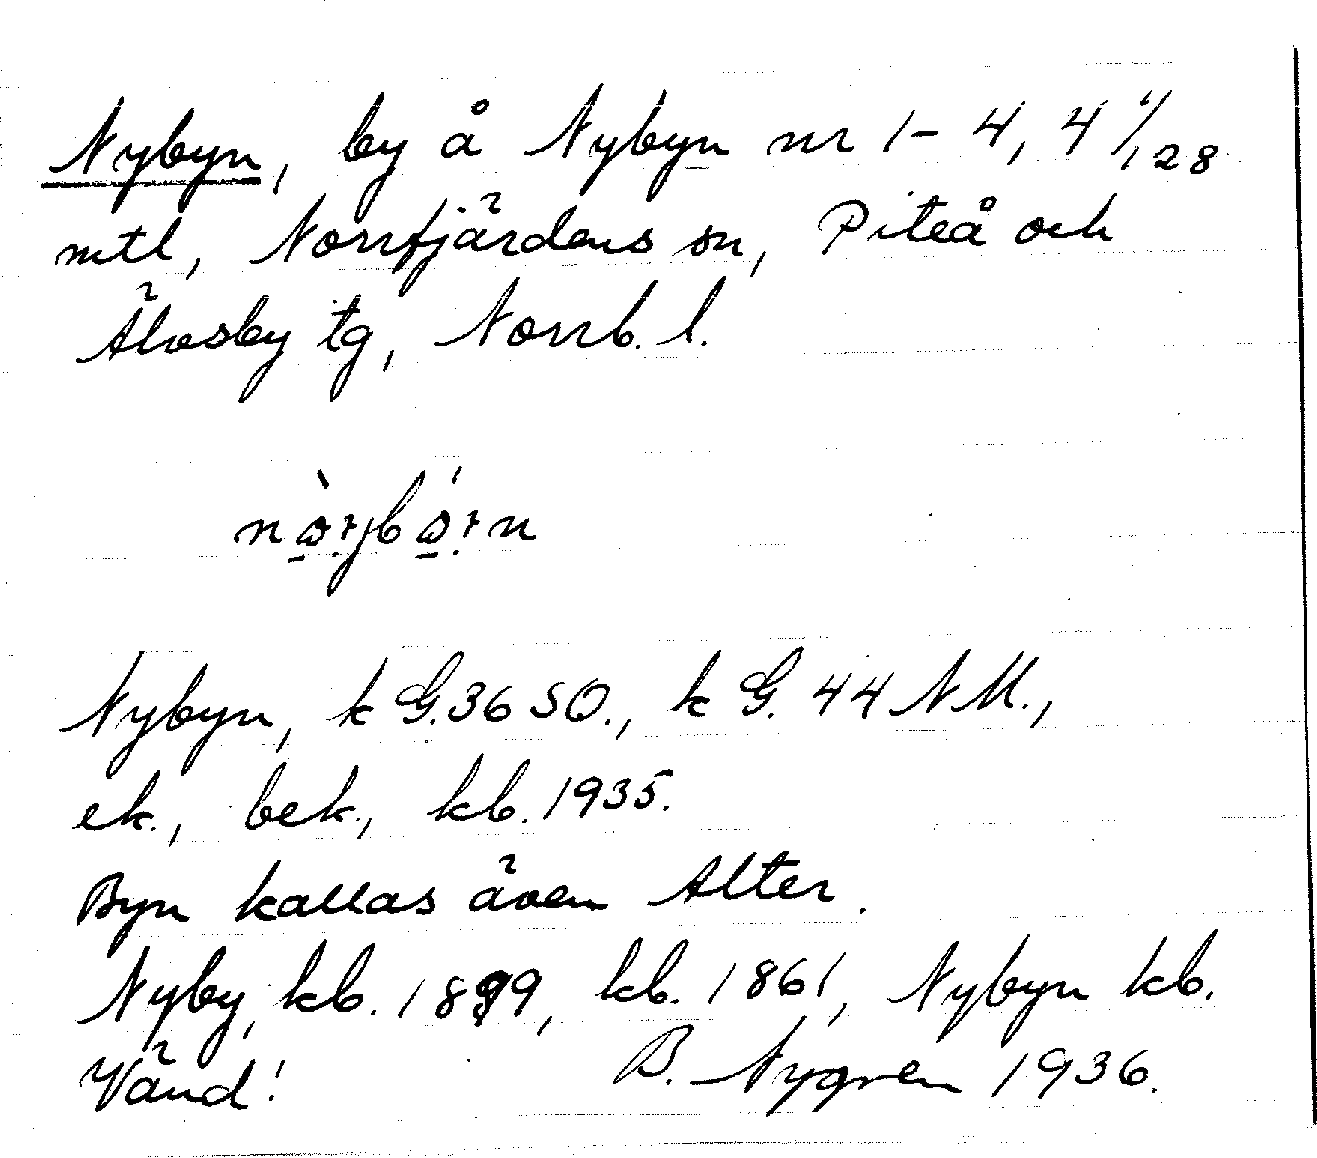 Nybyn, by å Nybyn nr 1-4, 4 1/128
mtl, Norrfjärdens sn, Piteå och
Älvsby tg, Norrb. l.
Nybyn, k G.36 SO., k G. 44 NM.,
ek., bek., kb. 1935.
Byn kallas även Alter.
Nyby, kb. 1899, kb. 1861, Nybyn kb.
Vänd! B. Nygren 1936.